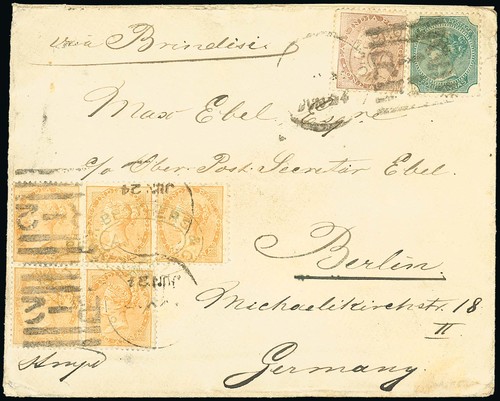 via Brindisi
Max Ebel Esqre
c/o Ober Post Secretär Ebel
Berlin
Michaelikirchstr. 18
II
Germany.
JUN 24
JUN 24